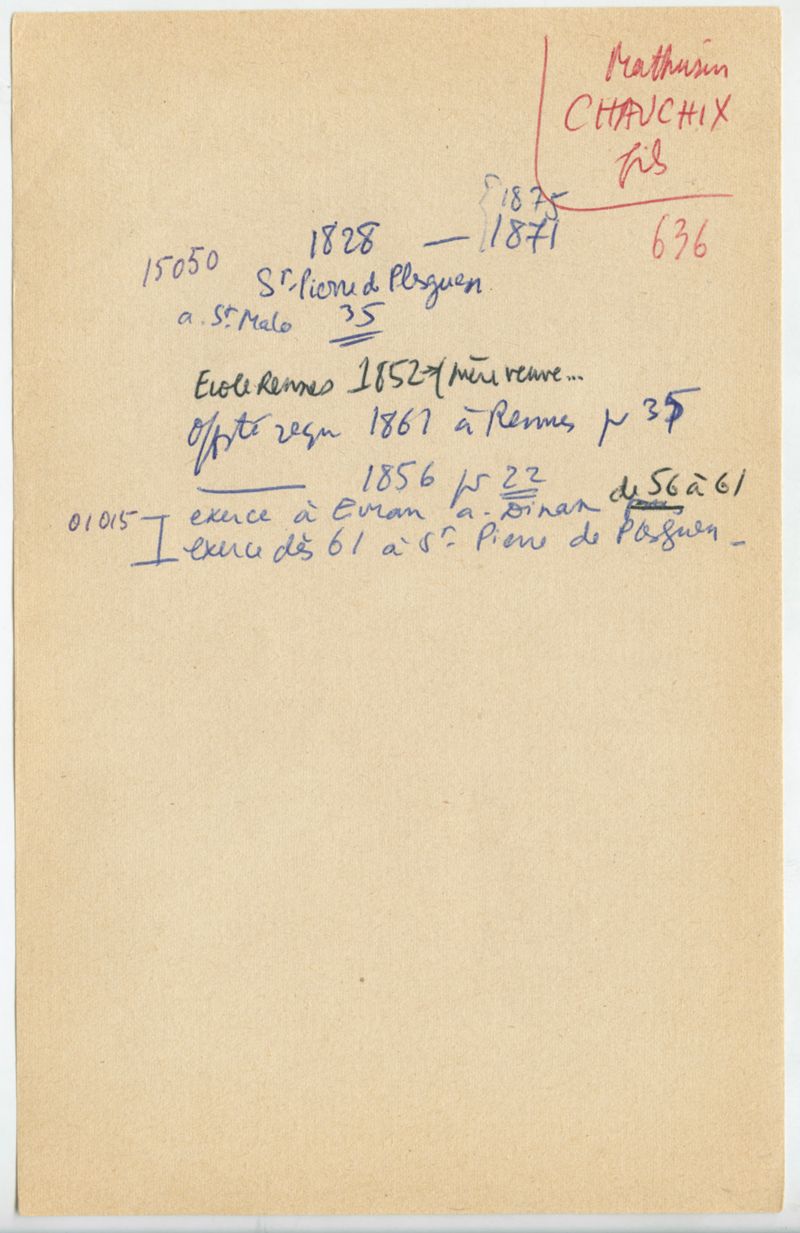 Mathurin
CHAUCHIX
fils
636
1875
15050 1828 — 1871
St-Pierre de Plesguen
a. St Malo 35
Ecole Rennes 1852 → (mère veuve...
reçu 1861 à Rennes pr 35
1856 pr 22
01015 exerce à Evran a. Dinan de 56 à 61
exerce dès 61 à St Pierre de Plesguen -